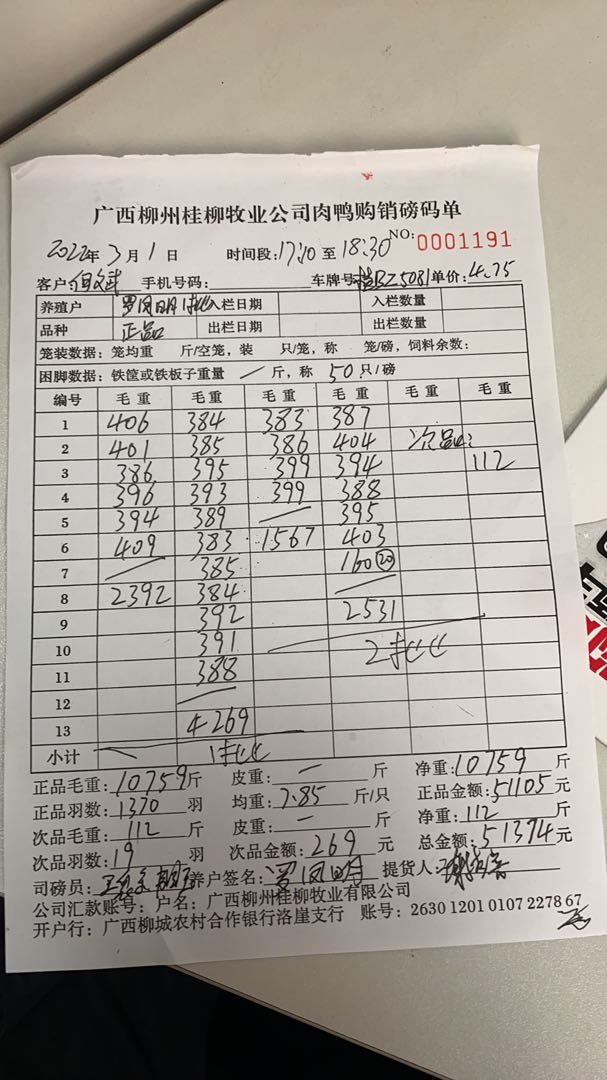 广西柳州桂柳牧业公司肉鸭购销磅码单
2022年3月1日 时间段:17:10至18:30 NO:0001191
客户: 手机号码: 车牌号:桂BZ5081 单价:4.75
养殖户 罗凤明1批 入栏日期 入栏数量
品种 正品 出栏日期 出栏数量
笼装数据:笼均重 斤/空笼,装 只/笼,称 笼/磅,饲料余数:
困脚数据:铁筐或铁板子重量 — 斤,称 50只1磅
编号 毛重 毛重 毛重 毛重 毛重 毛重
1 406 384 383 387
2 401 385 386 404 次品:
3 386 395 399 394 112
4 396 393 399 388
5 394 389 — 395
6 409 383 1567 403
7 — 385 160⑳
8 2392 384 —
9 392 2531
10 391 2批
11 388
12 —
13 4269
小计 1批
正品毛重:10759斤 皮重:— 斤 净重:10759斤
正品羽数:1370羽 均重:7.85斤/只 正品金额:51105元
次品毛重:112斤 皮重:— 斤 净重:112斤
次品羽数:19羽 次品金额:269元 总金额:51374元
司磅员: 养户签名:罗凤明 提货人:
公司汇款账号:户名:广西柳州桂柳牧业有限公司
开户行:广西柳城农村合作银行洛崖支行 账号:2630 1201 0107 2278 67